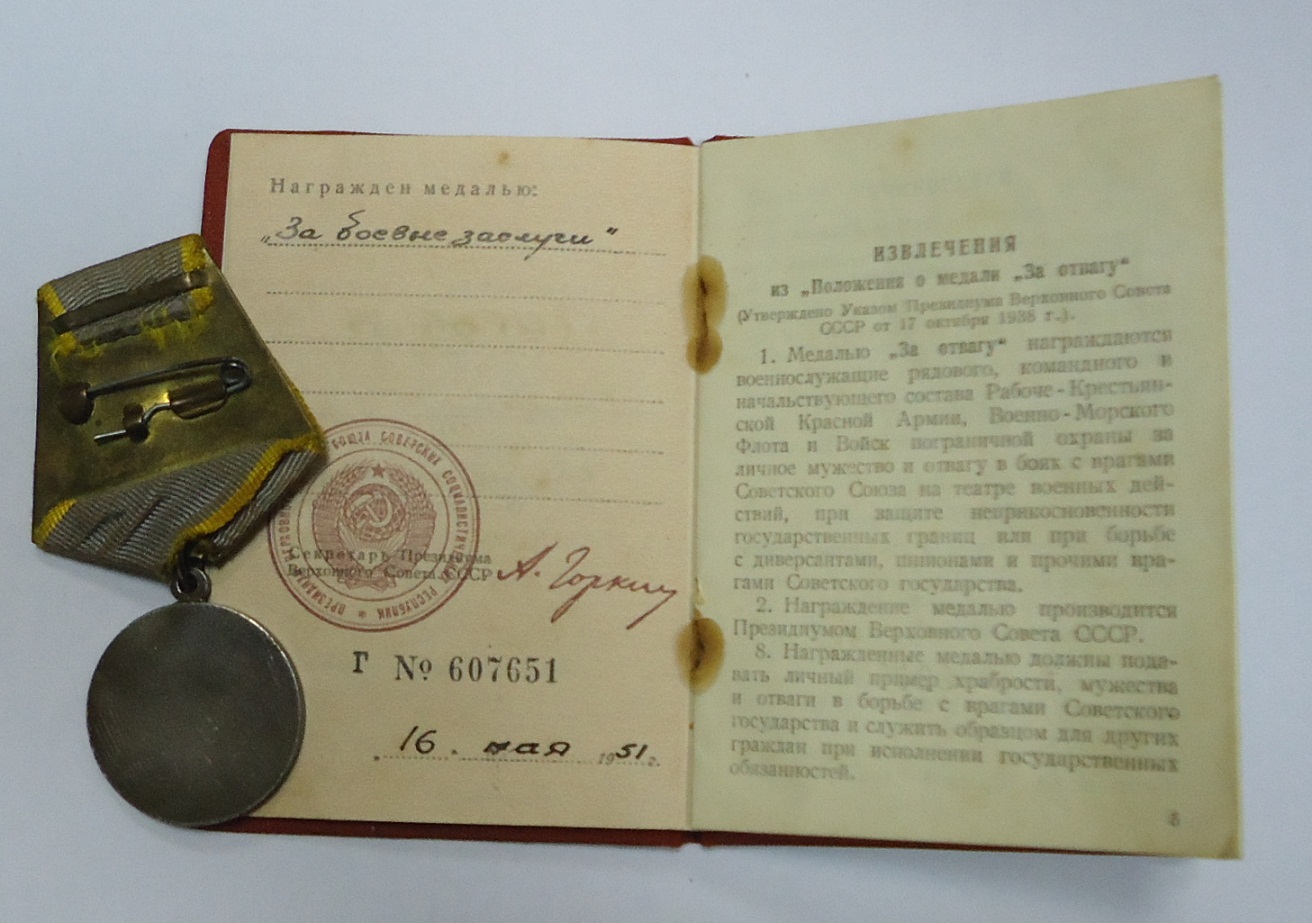 Награжден медалью:
„За боевые заслуги"
СОЮЗА СОВЕТСКИХ СОЦИАЛИСТИЧЕСКИХ РЕСПУБЛИК = ПРЕЗИДИУМ
Секретарь Президиума
Верховного Совета СССР А. Горкин
Г № 607651
16 . мая 1951 г.
ИЗВЛЕЧЕНИЯ
из „Положения о медали „За отвагу“
(Утверждено Указом Президиума Верховного Совета
СССР от 17 октября 1938 г.).
1. Медалью „За отвагу" награждаются
военнослужащие рядового, командного и
начальствующего состава Рабоче-Крестьян-
ской Красной Армии, Военно-Морского
Флота и Войск пограничной охраны за
личное мужество и отвагу в боях с врагами
Советского Союза на театре военных дей-
ствий, при защите неприкосновенности
государственных границ или при борьбе
с диверсантами, шпионами и прочими вра-
гами Советского государства.
2. Награждение медалью производится
Президиумом Верховного Совета СССР.
8. Награжденные медалью должны пода-
вать личный пример храбрости, мужества
и отваги в борьбе с врагами Советского
государства и служить образцом для других
граждан при исполнении государственных
обязанностей.